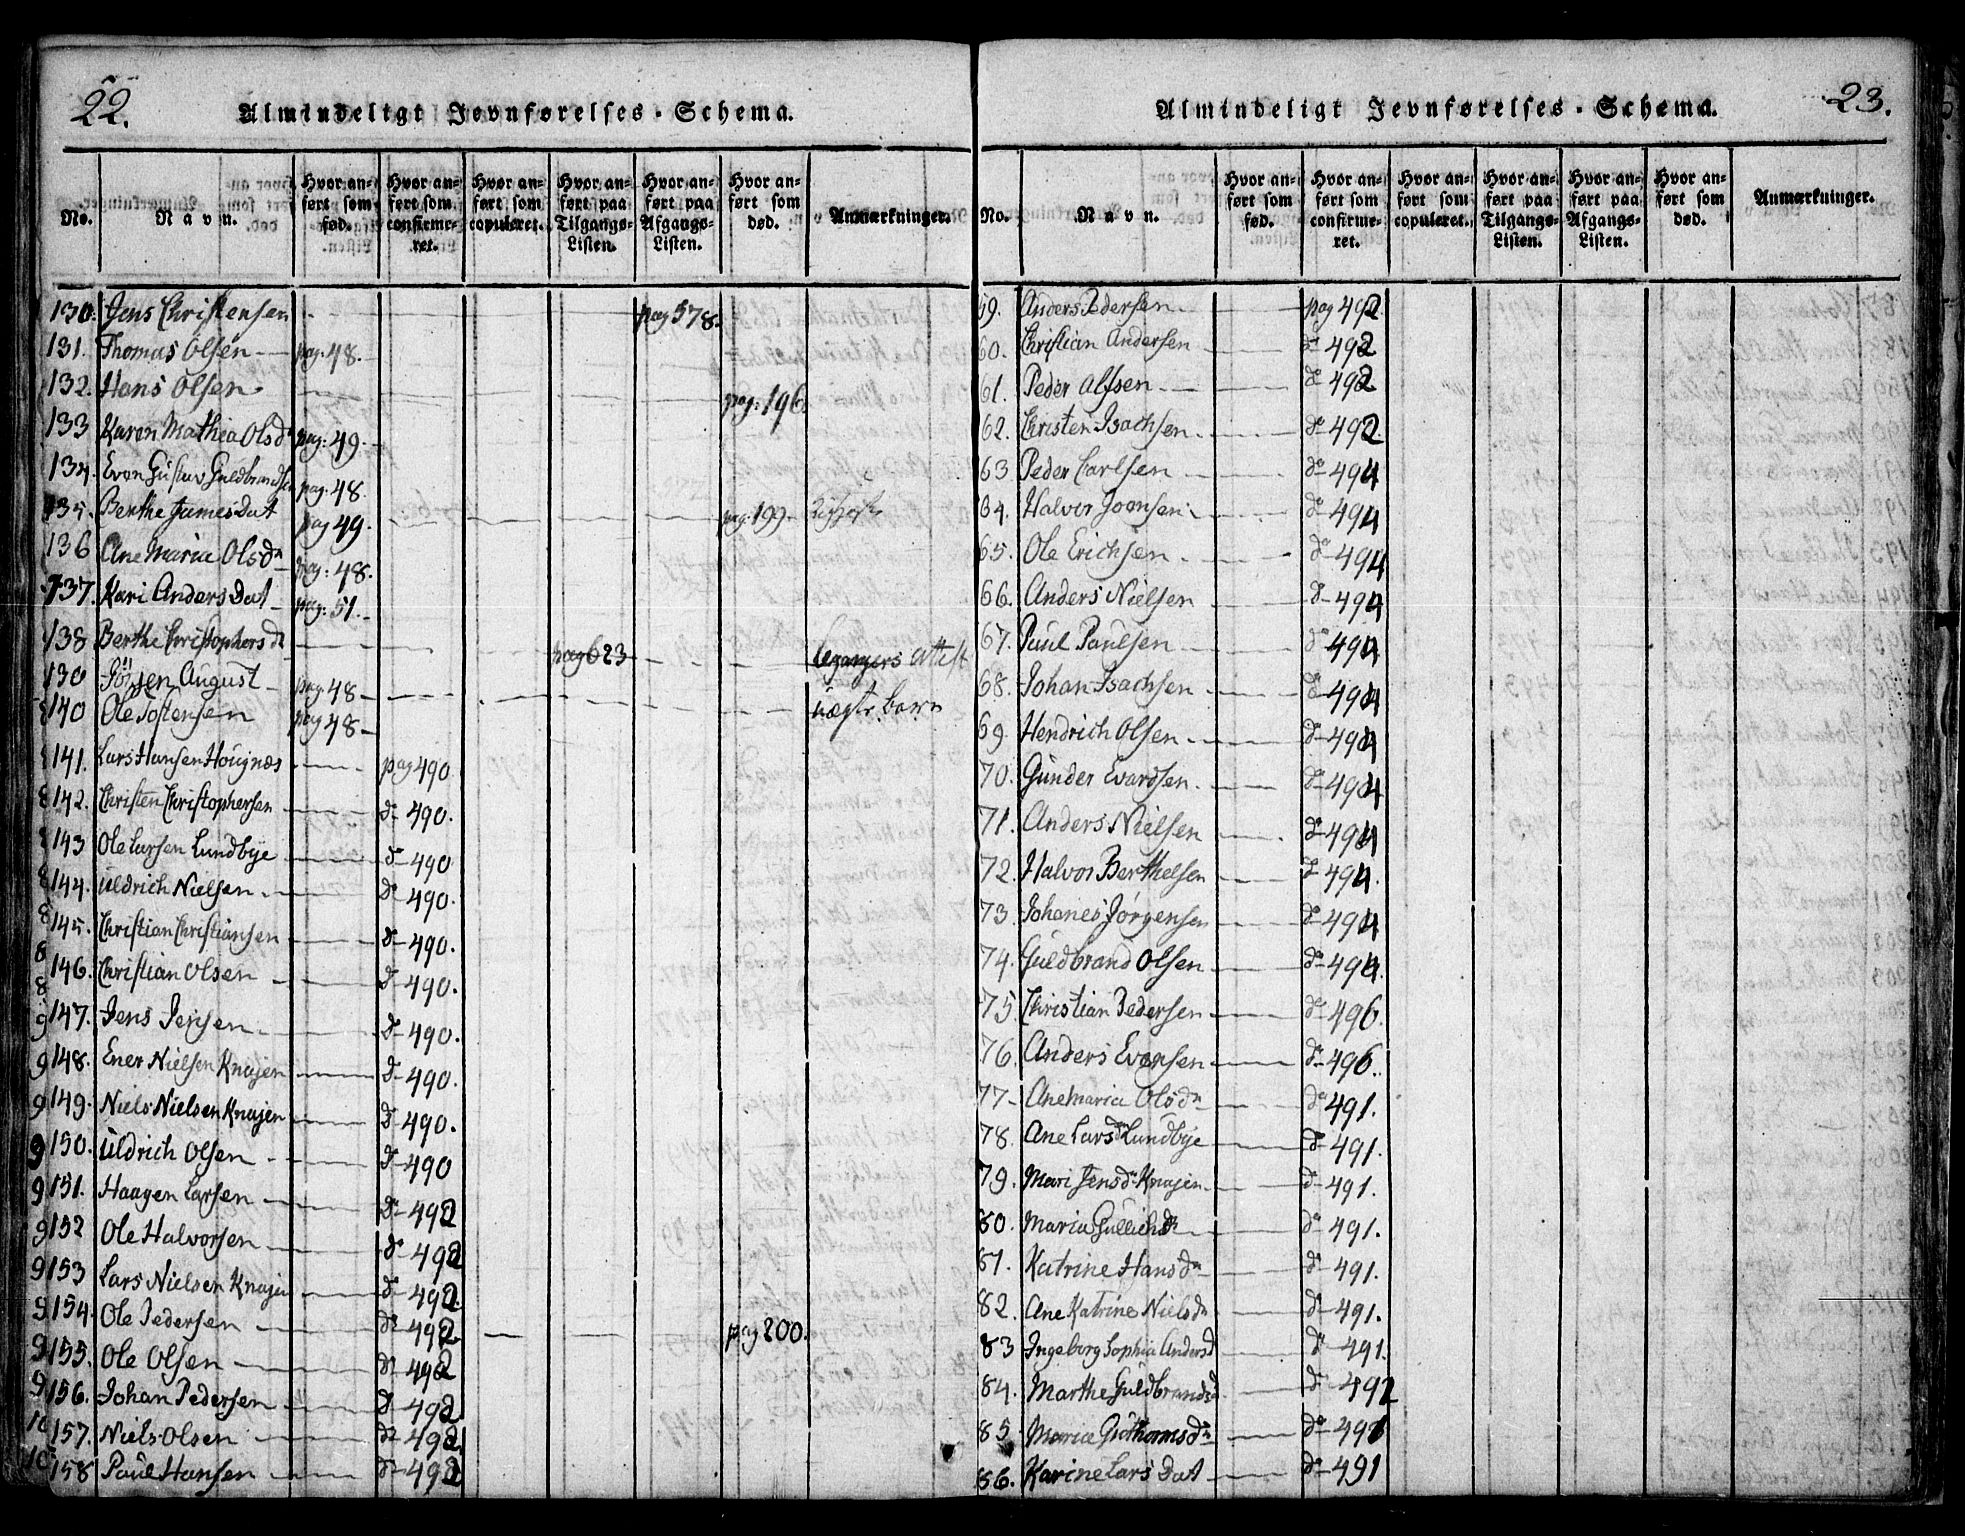 22.
Almindeligt Jevnførelses-Schema.
No. Navn. Hvor anført som fød. Hvor anført som confirmeret. Hvor anført som copuleret. Hvor anført paa Tilgangs-Listen. Hvor anført paa Afgangs-Listen. Hvor anført som død. Anmærkninger.
130. Jens Christensen pag 578.
131. Thomas Olsen pag. 48.
132. Hans Olsen pag. 196
133 Karen Mathea Olsdr pag. 49.
134. Even Gustav Guldbrandsen pag. 48.
135. Berthe Jamesdat pag 49. pag. 199
136 Ane Maria Olsdr pag. 48.
137. Kari Anders Dat pag. 51.
138 Berthe Christophersdr pag 623 attest
139 Jörgen August pag. 48
140 Ole Tostensen pag 48 uægte barn
141. Lars Hansen Hougnæs pag 490
142. Christen Christophersen do 490.
143 Ole Larsen Lundbye do 490
144. Uldrich Nielsen do 490.
145. Christian Christiansen do 490.
146. Christian Olsen do 490.
147. Jens Jensen do 490.
148. Ener Nielsen Knajen do 490.
149. Niels Nielsen Knajen do 490.
150. Uldrich Olsen do 490
151. Haagen Larsen do 492
152 Ole Halvorsen do 492
153 Lars Nielsen Knajen do 492.
154. Ole Pedersen do 492 pag 200.
155. Ole Olsen do 492
156. Johan Pedersen do 492
157. Niels Olsen do 492
158 Paul Hansen do 492
23.
Almindeligt Jevnførelses-Schema.
No. Navn. Hvor anført som fød. Hvor anført som confirmeret. Hvor anført som copuleret. Hvor anført paa Tilgangs-Listen. Hvor anført paa Afgangs-Listen. Hvor anført som død. Anmærkninger.
59. Anders Pedersen pag 492
60. Christian Andersen do 492
61. Peder Alfsen do 492
62. Christen Isachsen do 492
63 Peder Carlsen do 494
64. Halvor Joensen do 494
65. Ole Erichsen do 494
66. Anders Nielsen do 494
67. Paul Paulsen do 494
68. Johan Isachsen do 494
69. Hendrich Olsen do 494
70. Gunder Evardsen do 494
71. Anders Nielsen do 494
72. Halvor Berthelsen do 494.
73 Johanes Jørgensen do 494
74. Guldbrand Olsen do 494.
75 Christian Pedersen do 496.
76. Anders Evensen do 496.
77 Ane Maria Olsdr do 491.
78. Ane Larsdr Lundbye do 491.
79. Mari Jensdr Knajen do 491.
80. Maria Gullichsdr do 491.
81. Katrine Hansdr do 491.
82. Ane Katrine Nielsdr do 491.
83 Ingeborg Sophia Andersd do 491.
84. Marthe Guldbrandsd do 492
85 Maria Guthormsdr do 491
86. Karine Lars Dat do 491